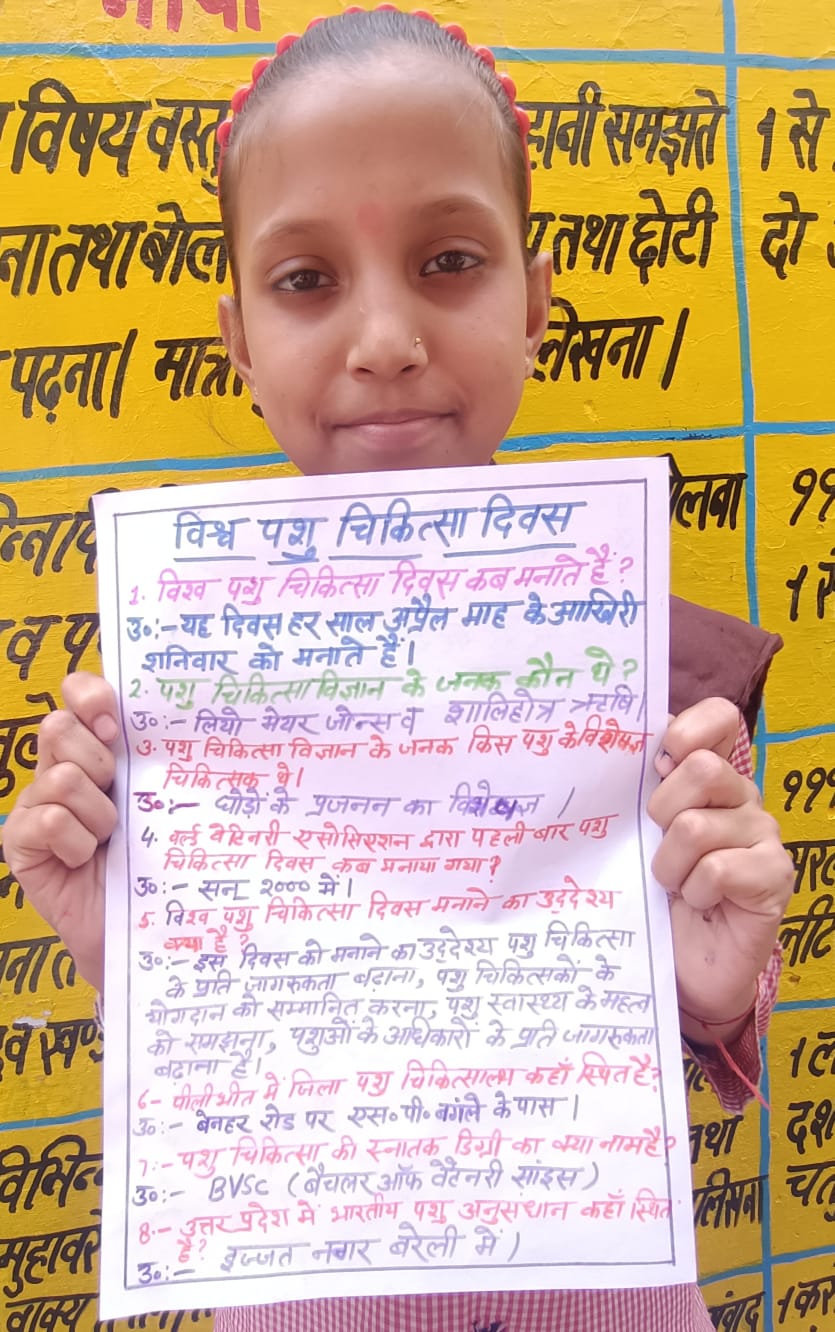 भाषा
विषय वस्तु
हानी समझते
1 से
ना तथा बोल
तथा छोटी
दो
पढ़ना। मात्रा
लिखना।
विश्व पशु चिकित्सा दिवस
1. विश्व पशु चिकित्सा दिवस कब मनाते हैं?
उ०:- यह दिवस हर साल अप्रैल माह के आखिरी
शनिवार को मनाते हैं।
2. पशु चिकित्सा विज्ञान के जनक कौन थे?
उ०:- लियो मेयर जोन्स व शालिहोत्र ऋषि।
3. पशु चिकित्सा विज्ञान के जनक किस पशु के विशेषज्ञ
चिकित्सक थे।
उ०:- घोड़ों के प्रजनन का विशेषज्ञ।
4. वर्ल्ड वेटिनरी एसोसिएशन द्वारा पहली बार पशु
चिकित्सा दिवस कब मनाया गया?
उ०:- सन् २००० में।
5. विश्व पशु चिकित्सा दिवस मनाने का उद्देश्य
क्या है?
उ०:- इस दिवस को मनाने का उद्देश्य पशु चिकित्सा
के प्रति जागरुकता बढ़ाना, पशु चिकित्सकों के
योगदान को सम्मानित करना, पशु स्वास्थ्य के महत्व
को समझना, पशुओं के अधिकारों के प्रति जागरुकता
बढ़ाना है।
6- पीलीभीत में जिला पशु चिकित्सालय कहाँ स्थित है?
उ०:- बेनहर रोड पर एस०पी० बंगले के पास।
7:- पशु चिकित्सा की स्नातक डिग्री का क्या नाम है?
उ०:- BVSc (बैचलर ऑफ वेटनरी साइंस)
8:- उत्तर प्रदेश में भारतीय पशु अनुसंधान कहाँ स्थित
है?
उ०:- इज्जत नगर बरेली में।